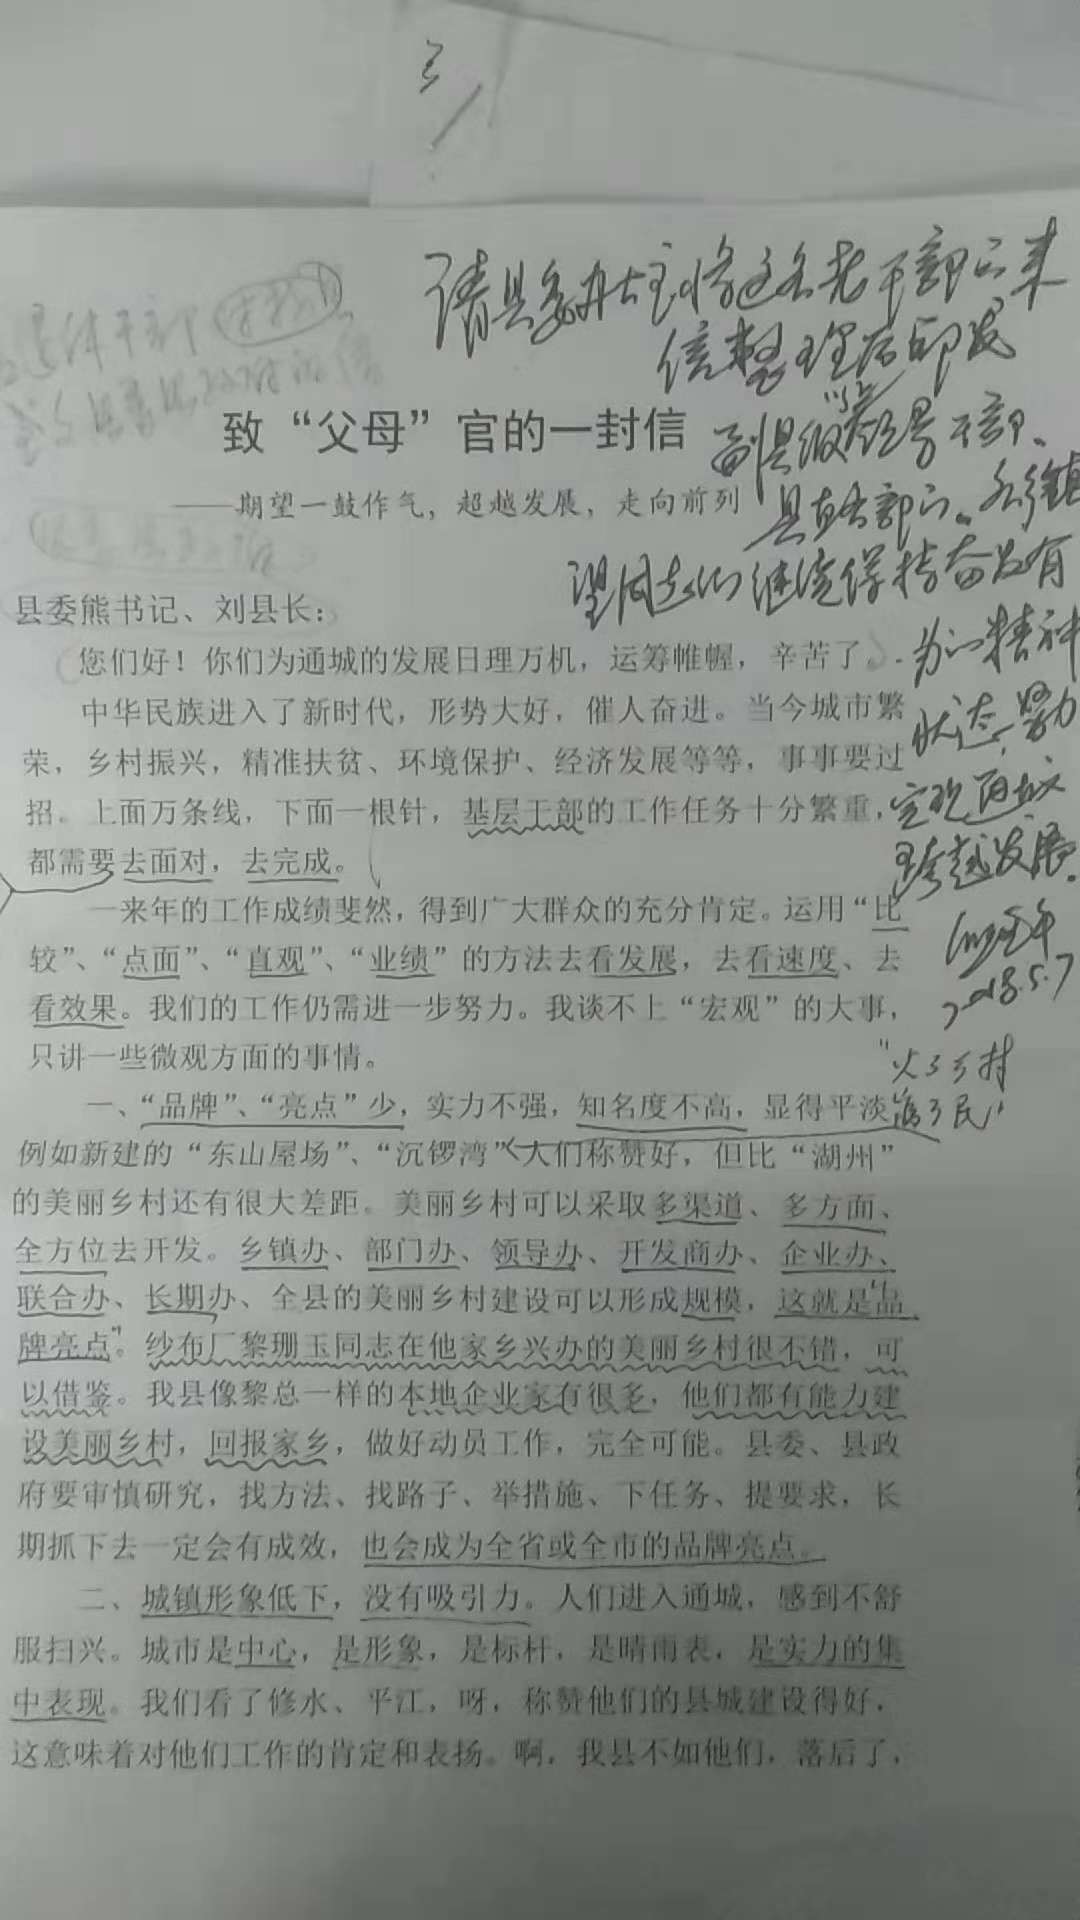 请县委办主将这名老干部的来
信整理后印发
副县级以上领导干部、
县直各部门、各乡镇
望同志们继续保持奋发有
为的精神
状态，努力
实现通城
跨越发展。
2018.5.7
致“父母”官的一封信
——期望一鼓作气，超越发展，走向前列
县委熊书记、刘县长：
您们好！你们为通城的发展日理万机，运筹帷幄，辛苦了。
中华民族进入了新时代，形势大好，催人奋进。当今城市繁
荣，乡村振兴，精准扶贫、环境保护、经济发展等等，事事要过
招。上面万条线，下面一根针，基层干部的工作任务十分繁重，
都需要去面对，去完成。
一来年的工作成绩斐然，得到广大群众的充分肯定。运用“比
较”、“点面”、“直观”、“业绩”的方法去看发展，去看速度、去
看效果。我们的工作仍需进一步努力。我谈不上“宏观”的大事，
只讲一些微观方面的事情。
“火了乡村
富了民”
一、“品牌”、“亮点”少，实力不强，知名度不高，显得平淡
例如新建的“东山屋场”、“沉锣湾”人们称赞好，但比“湖州”
的美丽乡村还有很大差距。美丽乡村可以采取多渠道、多方面、
全方位去开发。乡镇办、部门办、领导办、开发商办、企业办、
联合办、长期办、全县的美丽乡村建设可以形成规模，这就是“品
牌亮点”。纱布厂黎珊玉同志在他家乡兴办的美丽乡村很不错，可
以借鉴。我县像黎总一样的本地企业家有很多，他们都有能力建
设美丽乡村，回报家乡，做好动员工作，完全可能。县委、县政
府要审慎研究，找方法、找路子、举措施、下任务、提要求，长
期抓下去一定会有成效，也会成为全省或全市的品牌亮点。
二、城镇形象低下，没有吸引力。人们进入通城，感到不舒
服扫兴。城市是中心，是形象，是标杆，是晴雨表，是实力的集
中表现。我们看了修水、平江，呀，称赞他们的县城建设得好，
这意味着对他们工作的肯定和表扬。啊，我县不如他们，落后了，